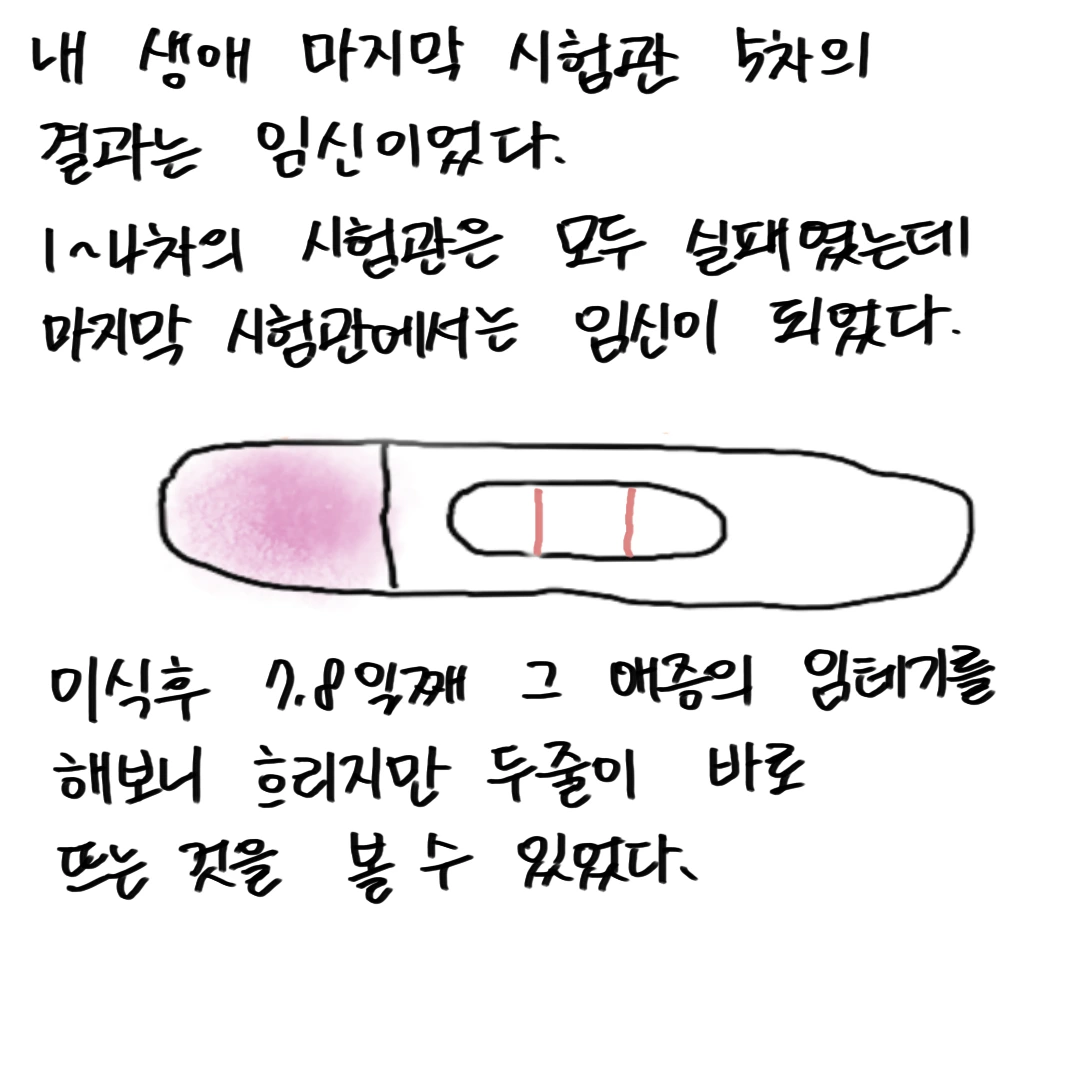 내 생애 마지막 시험관 5차의
결과는 임신이었다.
1~4차의 시험관은 모두 실패였는데
마지막 시험관에서는 임신이 되었다.
미식후 7.8일째 그 애증의 임테기를
해보니 흐리지만 두줄이 바로
뜨는 것을 볼 수 있었다.